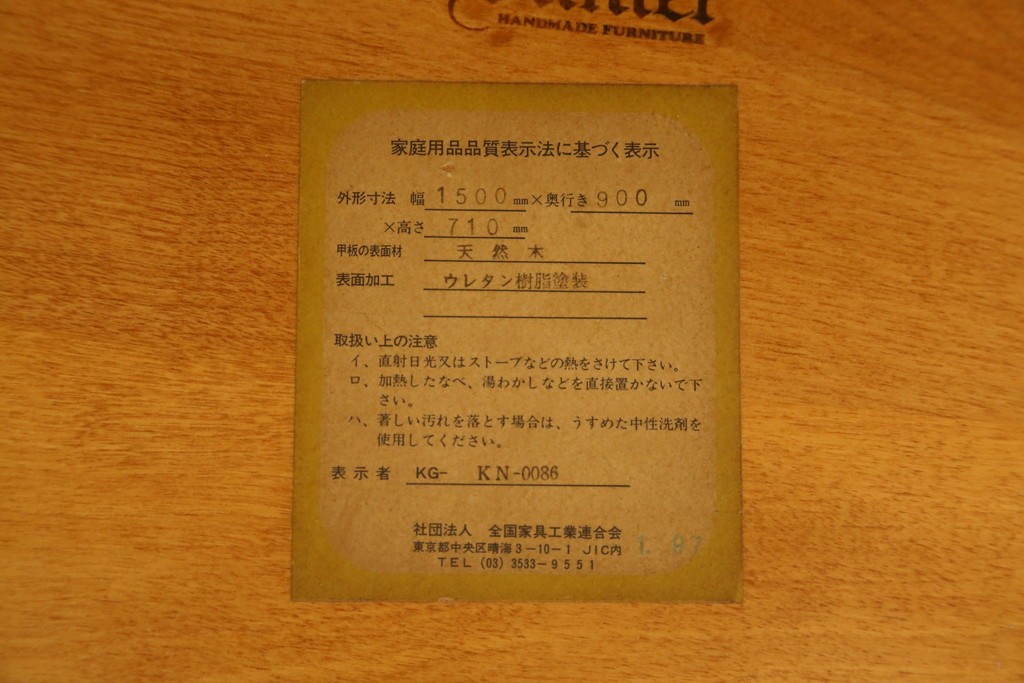 HANDMADE FURNITURE
家庭用品品質表示法に基づく表示
外形寸法 幅 1500 mm×奥行き 900 mm
×高さ 710 mm
甲板の表面材 天然木
表面加工 ウレタン樹脂塗装
取扱い上の注意
イ、直射日光又はストーブなどの熱をさけて下さい。
ロ、加熱したなべ、湯わかしなどを直接置かないで下
さい。
ハ、著しい汚れを落とす場合は、うすめた中性洗剤を
使用してください。
表示者 KG- KN-0086
社団法人 全国家具工業連合会
東京都中央区晴海3-10-1 JIC内
TEL (03) 3533-9551
1. 97